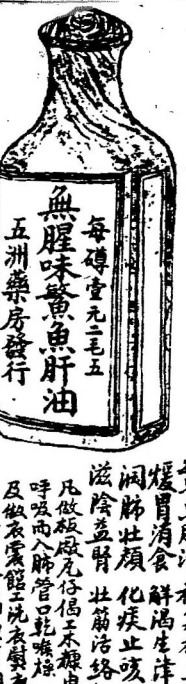 每磅壹元二毛五
無腥味鰵魚肝油
五洲藥房發行
煖胃消食 解渴生津
潤肺壯顏 化痰止咳
滋陰益腎 壯筋活絡
凡做板廠瓦仔偈工木糠由
呼吸而入肺管口乾喉燥
及做衣裳館工洗衣熨衣